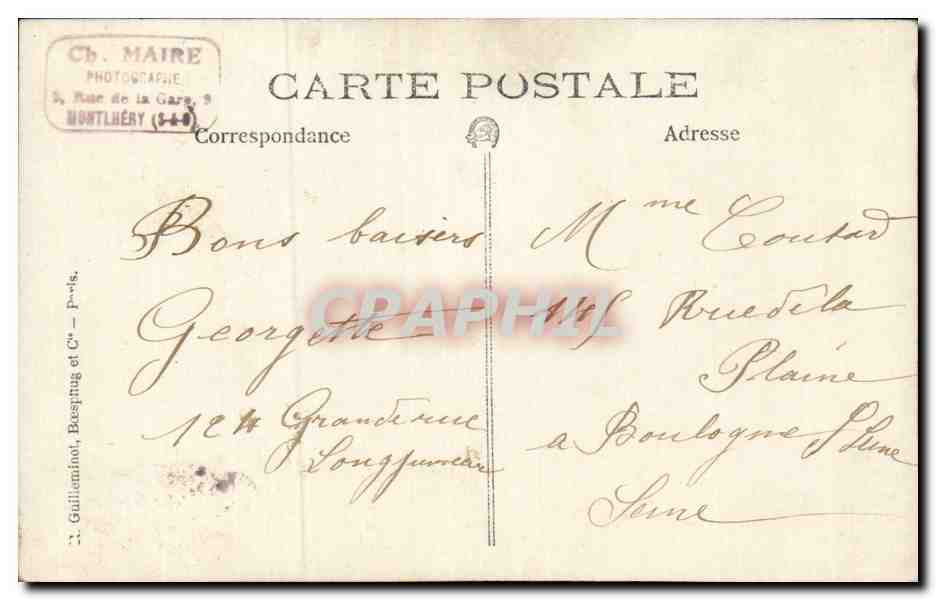 Ch. MAIRE
PHOTOGRAPHE
9, Rue de la Gare, 9
MONTLHÉRY (S-&-O)
CARTE POSTALE
Correspondance
Adresse
Bons baisers
Georgette
124 Grande rue
Longjumeau
Mme Coutard
Rue de la
Plaine
a Boulogne S Seine
Seine
R. Guilleminot, Bœspflug et Cie — Paris.
CPAPHIL